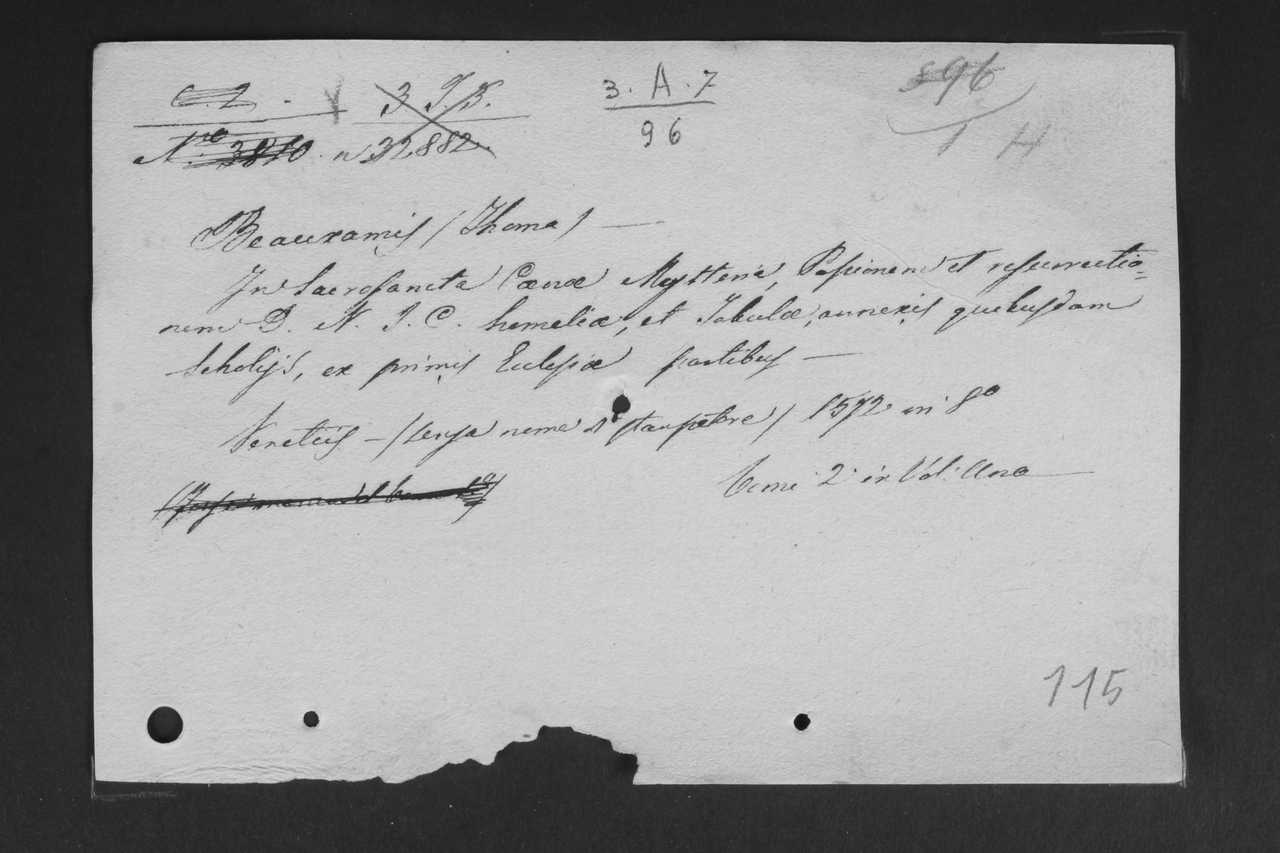 C. 2. 3 3. A. 7 896
N.ro 3810. n 32882. 96 1 H
Beauxamis (Thoma) —
In Sacrosancta Cœnæ Mysteria, Passionem et resurrectio=
nem D. N. J. C. homeliæ, et Tabulæ, annexis quibusdam
Scholijs, ex primis Eclesiæ partibus —
Venetiis — (senza nome di stampatore) 1572 in 8º
Tomi 2 in Vol: Uno
115